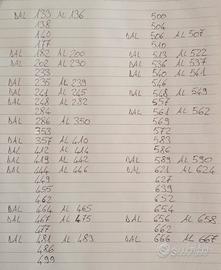 DAL 133 AL 136
138
140
177
DAL 182 AL 200
DAL 202 AL 230
233
DAL 235 AL 239
DAL 241 AL 245
DAL 248 AL 282
284
DAL 286 AL 350
353
DAL 357 AL 410
DAL 412 AL 414
DAL 419 AL 442
DAL 444 AL 446
449
455
462
DAL 464 AL 465
DAL 467 AL 475
477
DAL 481 AL 483
486
499
500
504
DAL 506 AL 507
510
DAL 513 AL 522
DAL 536 AL 537
DAL 540 AL 541
546
DAL 548 AL 549
557
DAL 561 AL 562
569
572
583
586
DAL 589 AL 590
DAL 621 AL 624
627
639
652
654
DAL 656 AL 658
662
DAL 666 AL 667
subito